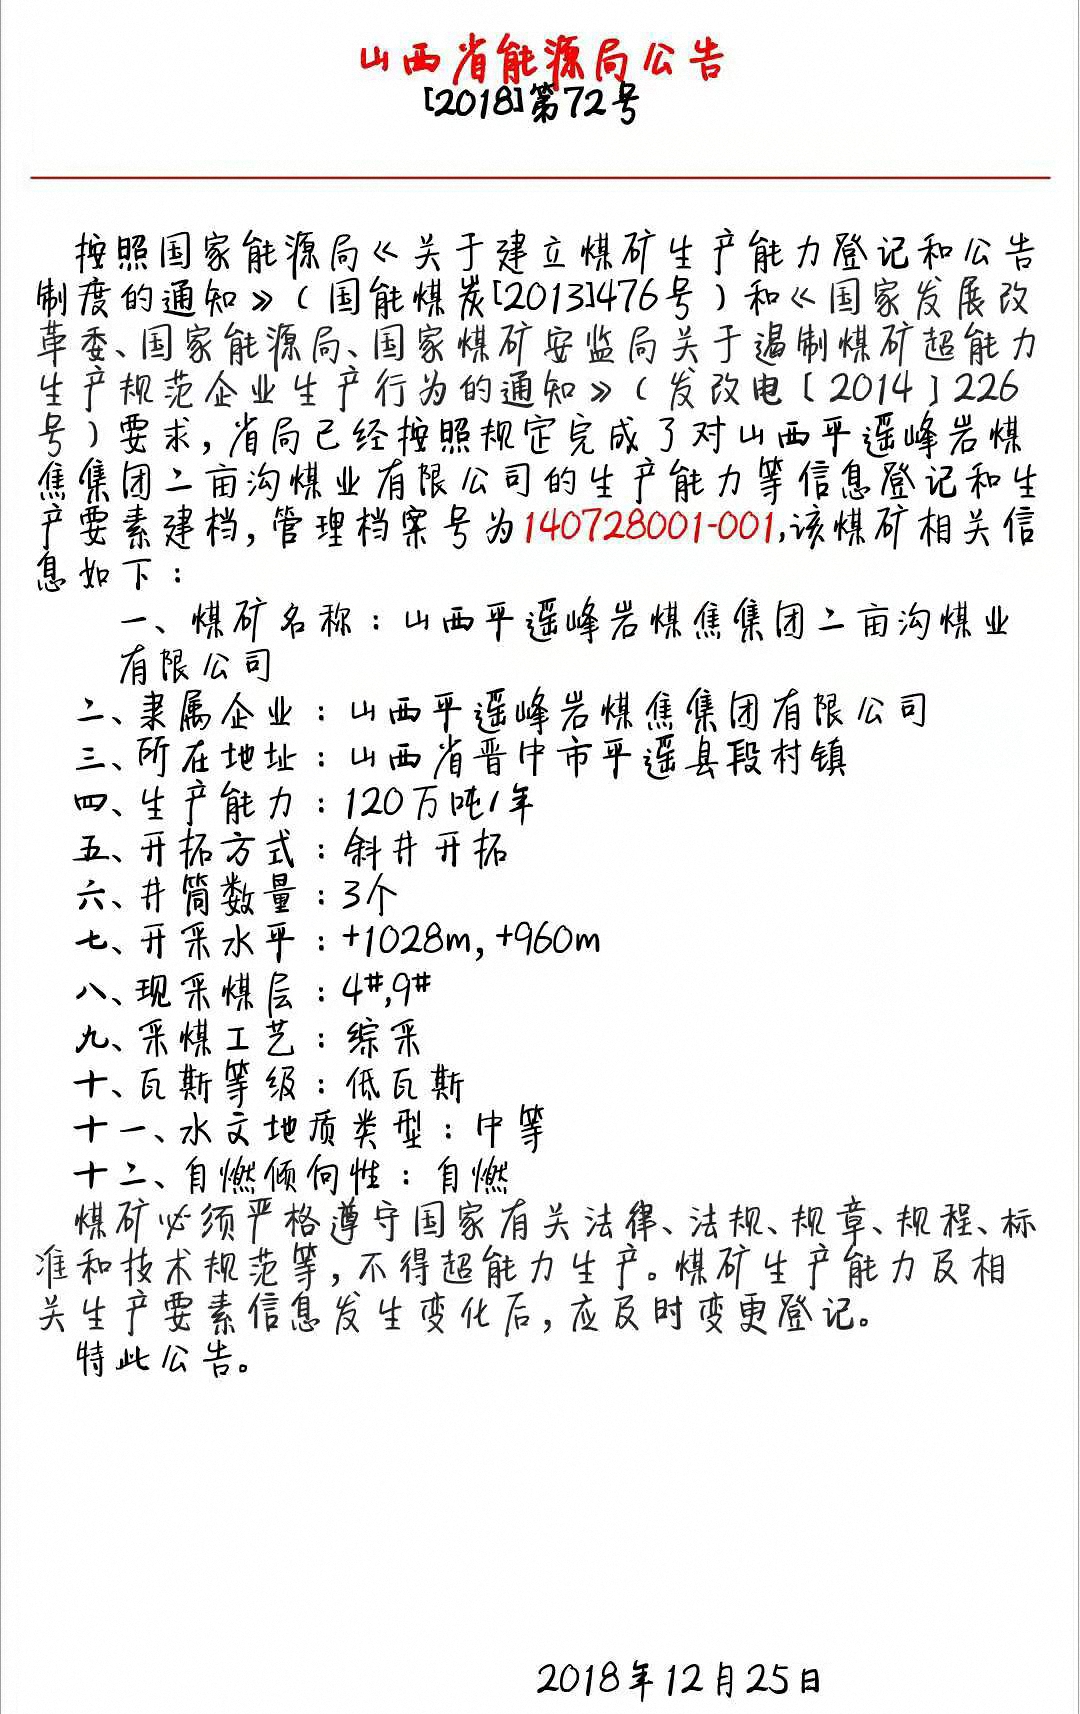 山西省能源局公告
[2018]第72号
按照国家能源局《关于建立煤矿生产能力登记和公告
制度的通知》(国能煤炭[2013]476号)和《国家发展改
革委、国家能源局、国家煤矿安监局关于遏制煤矿超能力
生产规范企业生产行为的通知》(发改电[2014]226
号)要求,省局已经按照规定完成了对山西平遥峰岩煤
焦集团二亩沟煤业有限公司的生产能力等信息登记和生
产要素建档,管理档案号为140728001-001,该煤矿相关信
息如下:
一、煤矿名称:山西平遥峰岩煤焦集团二亩沟煤业
有限公司
二、隶属企业:山西平遥峰岩煤焦集团有限公司
三、所在地址:山西省晋中市平遥县段村镇
四、生产能力:120万吨/年
五、开拓方式:斜井开拓
六、井筒数量:3个
七、开采水平:+1028m,+960m
八、现采煤层:4#,9#
九、采煤工艺:综采
十、瓦斯等级:低瓦斯
十一、水文地质类型:中等
十二、自燃倾向性:自燃
煤矿必须严格遵守国家有关法律、法规、规章、规程、标
准和技术规范等,不得超能力生产。煤矿生产能力及相
关生产要素信息发生变化后,应及时变更登记。
特此公告。
2018年12月25日